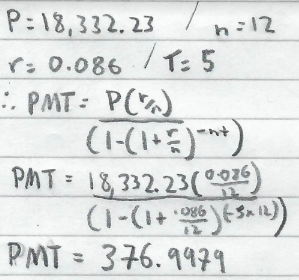 P=18,332.23 / n=12
r=0.086 / T=5
∴ PMT= P(r/n)
(1-(1+r/n)^-nt)
PMT= 18,332.23(0.086/12)
(1-(1+.086/12)^(-5x12))
PMT= 376.9979